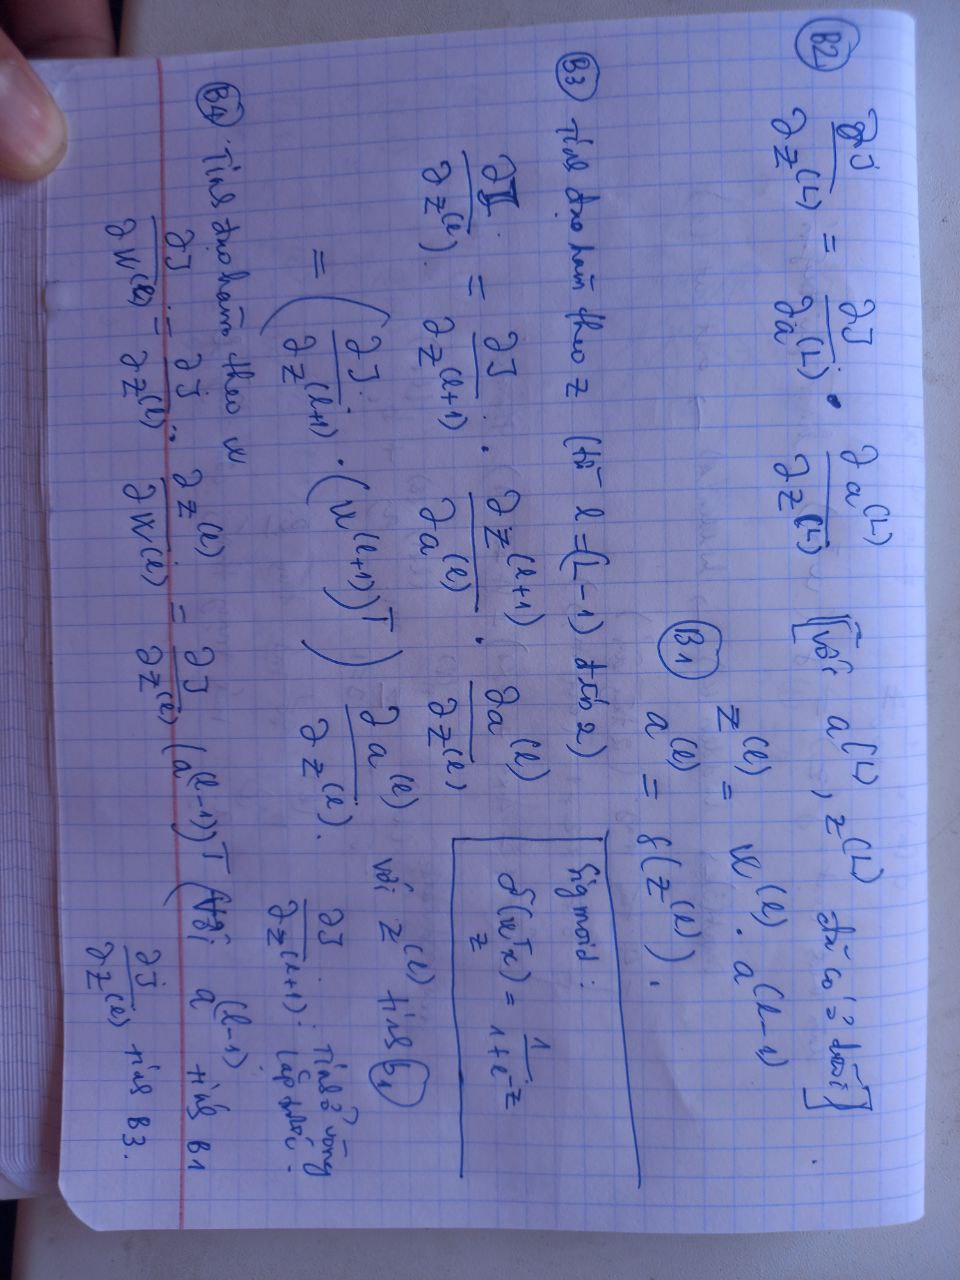 B2 ∂J/∂z^(L) = ∂J/∂a^(L) · ∂a^(L)/∂z^(L) [với a^(L), z^(L) đã có ở dưới].
B1 z^(l) = w^(l) · a^(l-1)
a^(l) = f(z^(l)).
B3 Tính đạo hàm theo z (từ l = (L-1) đến 2)
Sigmoid:
σ(w^T x) = 1/(1+e^-z)
z
∂J/∂z^(l) = ∂J/∂z^(l+1) · ∂z^(l+1)/∂a^(l) · ∂a^(l)/∂z^(l)
= (∂J/∂z^(l+1) · (w^(l+1))^T) ∂a^(l)/∂z^(l).
với z^(l) tính b1
∂J/∂z^(l+1): Tính ở vòng
lặp trước.
B4 Tính đạo hàm theo w
∂J/∂W^(l) = ∂J/∂z^(l) · ∂z^(l)/∂W^(l) = ∂J/∂z^(l) (a^(l-1))^T (với a^(l-1) tính B1
∂J/∂z^(l) tính B3.